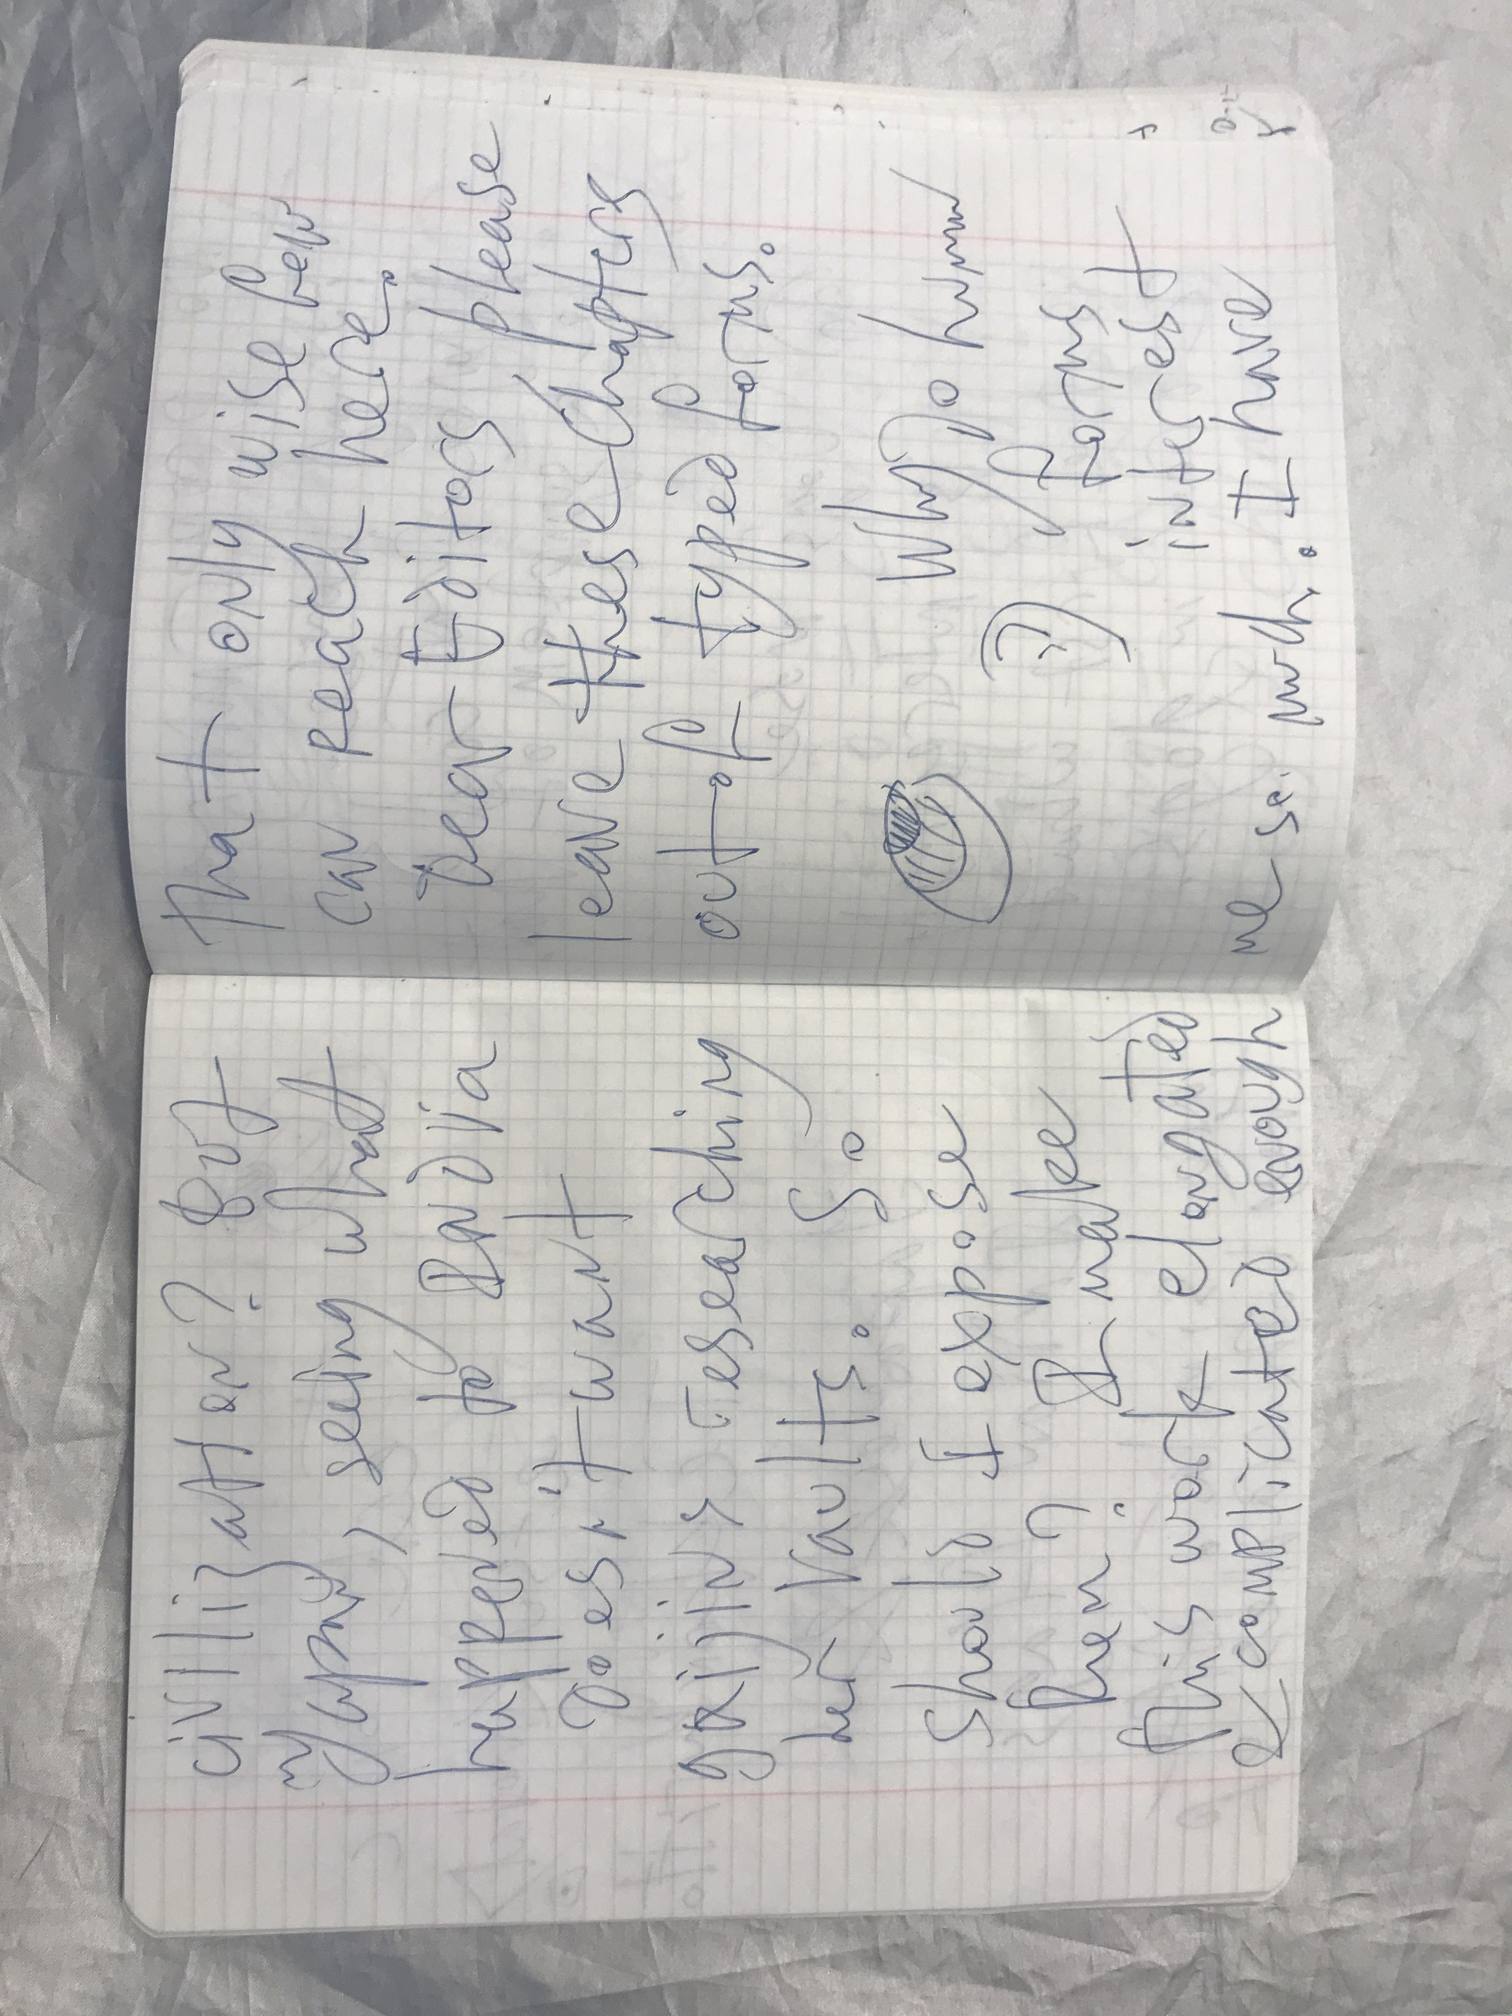 civilization? But
my , seeing what
happened to Pandia
Doesn't want
 researching
her vaults. So
should I expose
them? I make
this work elongated
& complicated enough
That only wise few
can reach here.
Dear Editors please
leave these chapters
out of typed forms.
Why Do hum
:) forms
interest
me so much. I have